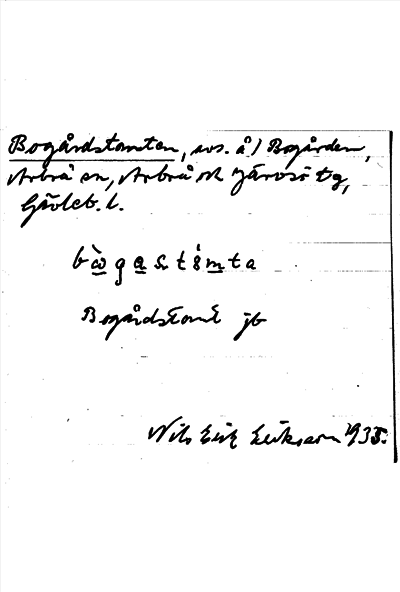 Bogårdstomten, sos. å) Bogården,
Arbrå sn, Arbrå och Järvsö tg,
Gävleb. l.
Bogårdstomt jb
Nils Erik Eriksson 1935.